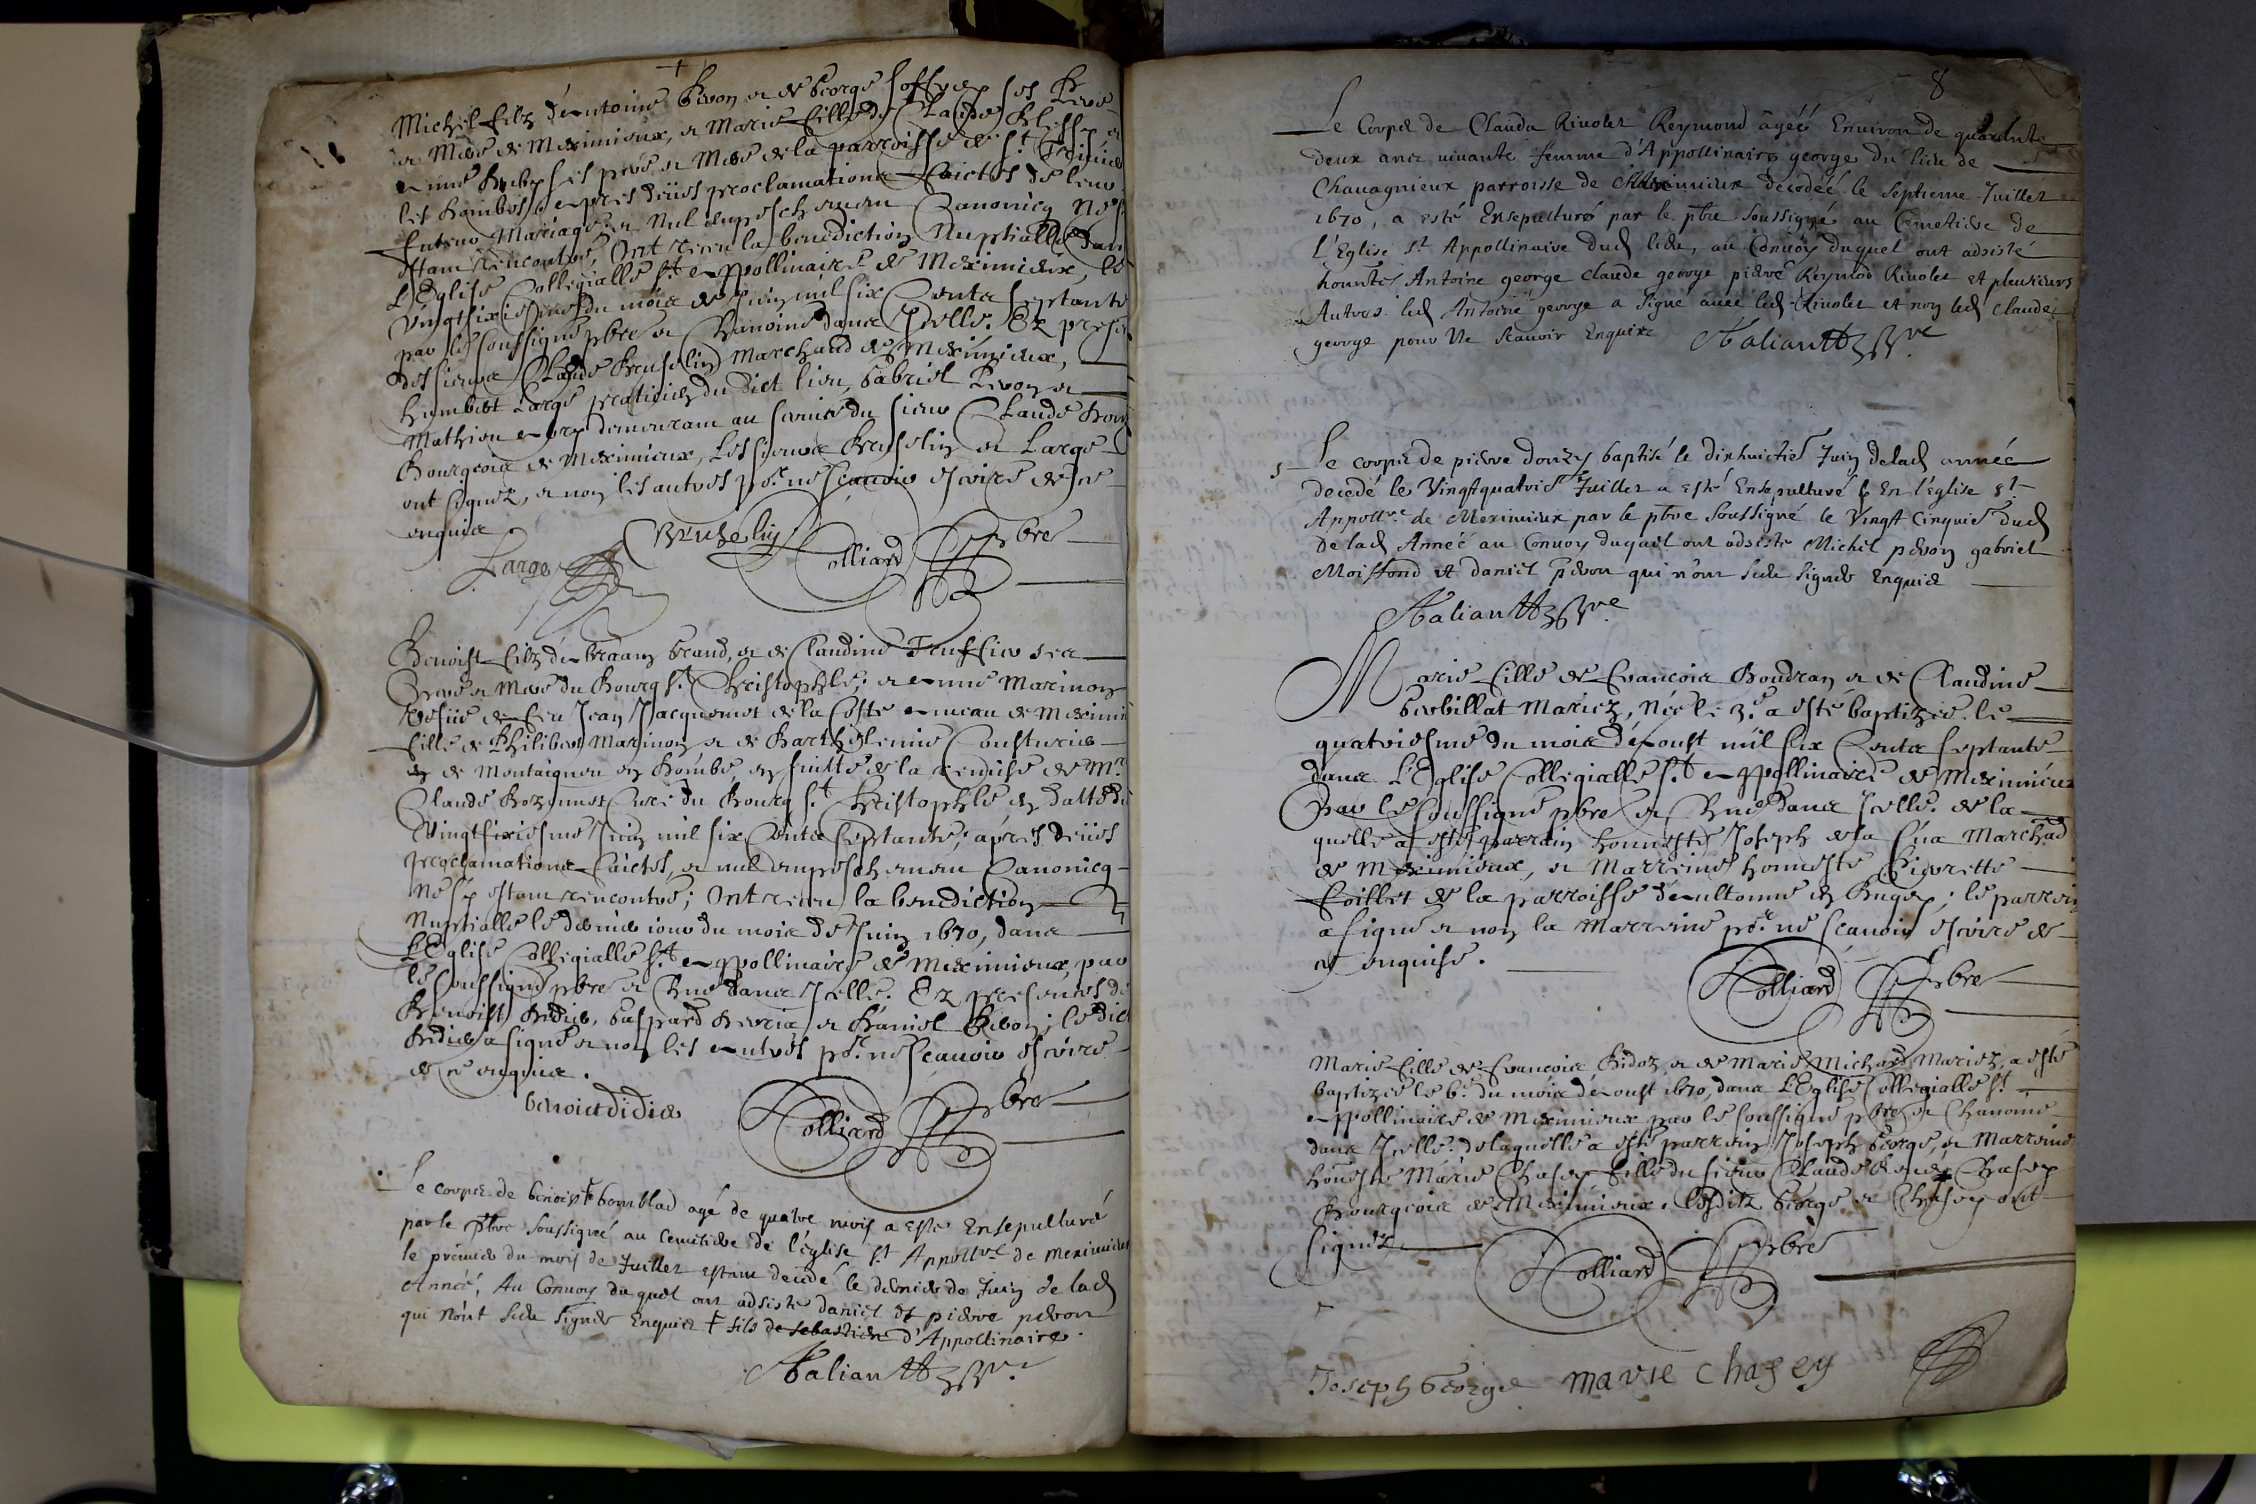 Michel filz d'Antoine Pivon et de George ses Pere
et Mere de Meximieux, et Marie fille de Claude
Anne ses pere et Mere de la parroisse de St.
les Dombes apres deües proclamations faictes de leur
futeur Mariage et Nul empeschement Canonicq ne s'y
estant rencontré, Ont receu la benediction Nuptialle dans
L'Eglise Collegialle St. Appollinaire de Meximieux, le
Vingtsixiesme du mois de Juin mil six Cents septante
par le soussigné pbre et Chanoine dans Icelle. Et presents
les sieurs Claude Bruselin Marchand de Meximieux,
Humbert Large praticien du dict lieu, Gabriel Pivon et
Mathieu demeurant au service du sieur Claude
Bourgeois de Meximieux, Les sieurs Bruselin et Large
ont signez et non les autres pr. ne scavoir escrire de ce
enquis
Large Bruselin Colliard pbre
Benoist filz d' Abraam et de Claudine ses
Pere et Mere du Bourg St. Christophle; et Anne Marinon
vefue de feu Jean Jacquemet de la Coste hameau de Meximieux
fille de Philibert Marinon et de Barthelemie Cousturier
de Montaigneu en Bombe, en suitte de la remise de Mr.
Claude Curé du Bourg St. Christophle en datte du
Vingtsixiesme Juin mil six Cents septante; apres deües
proclamations faictes, et nul empeschement Canonicq
ne s'y estant rencontré; Ont receu la benediction
Nuptialle le dernier iour du mois de Juin 1670, dans
L'Eglise Collegialle St. Appollinaire de Meximieux, par
le soussigné pbre et Chne dans Icelle. Et presences de
Benoist Didier, Gaspard et Daniel Pivon; le dict
Didier a signé et non les autres pr. ne scavoir escrire
de ce enquis.
benoict didier Colliard pbre
Le corps de benoist † bomblad agé de quatre mois a esté Ensepulturé
par le ptre soussigné au Cemetiere de l'église St. Appollre de meximieux
le premier du mois de Juillet estant decedé le dernier de Juin de lad
Année, Au Convoy du quel ont adsisté daniel et pierre pivon
qui n'ont sceu signer Enquis † fils de sebastien d'Appollinaire.
8
Le Corps de Clauda Rivolet Reymond agéé Environ de quarante
deux ans vivante femme d'Appollinaire george du lieu de
Chavagnieux parroisse de Meximieux decedéé le septieme Juillet
1670, a esté Ensepulturé par le ptre soussigné au Cimetiere de
l'Eglise St Appollinaire dud lieu, au Convoy duquel ont adsisté
honnetes Antoine george claude george pierre Reymod Rivolet et plusieurs
Autres led Antoine george a signé avec led Rivolet et non led claude
george pour Ne scavoir Enquis
Le corps de pierre donzy baptisé le dixhuictie Juin delad année
decedé le Vingtquatrie Juillet a esté Ensepulturé En l'église St
Appollre de Meximieux par le ptre soussigné le Vingt Cinquie dud
de lad Année au Convoy duquel ont adsisté Michel pivon gabriel
Moissond et daniel pivon qui n'ont sceu signer Enquis
Marie fille de François Boudran et de Claudine
Berbillat Mariez, Née le 3e a esté baptizée le
quatriesme du mois d'Aoust mil six Cents septante
dans L'Eglise Collegialle St. Appollinaire de Meximieux
par le soussigné pbre et Chne dans Icelle. de la
quelle a esté parrain honneste Joseph de la Cua Marchād
de Meximieux, et Marreine honneste Pierrette
Coillet de la parroisse d'Aultonne en Bugey; le parrein
a signé et non la Marreine pr. ne scavoir escrire de
ce enquise.
Colliard pbre
Marie fille de François Bidoz et de Marie Michard Mariez, a esté
baptizée le 6e. du mois d'Aoust 1670, dans L'Eglise Collegialle St.
Appollinaire de Meximieux par le soussigné pbre et Chanoine
dans Icelle: de laquelle a esté parrein Joseph George, et Marreine
honeste Marie Chasey fille du sieur Claude René Chasey
Bourgeois de Meximieux, lesditz George et Chasey ont
signez
Colliard pbre
Joseph George marie chasey